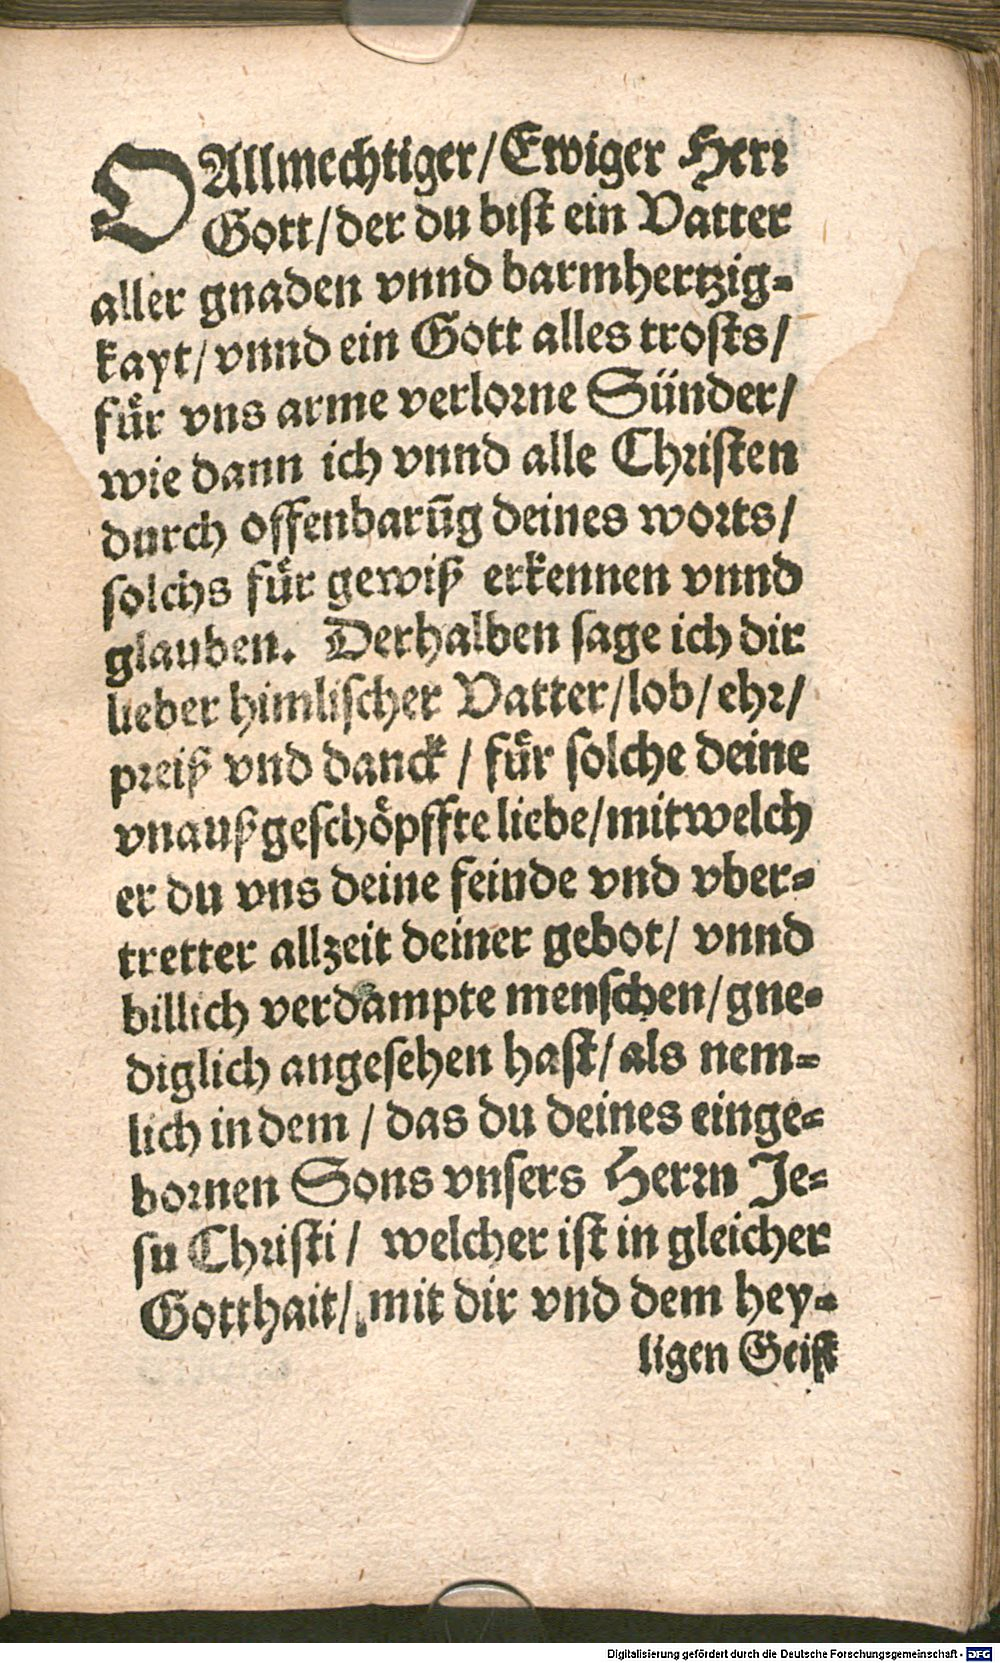 O Allmechtiger/ Ewiger Herr
Gott/ der du bist ein Vatter
aller gnaden vnnd barmhertzig-
kayt/ vnnd ein Gott alles trosts/
fuͤr vns arme verlorne Sünder/
wie dann ich vnnd alle Christen
durch offenbarūg deines worts/
solchs fuͤr gewiß erkennen vnnd
glauben. Derhalben sage ich dir
lieber himlischer Vatter/ lob/ ehr/
preiß vnd danck / fuͤr solche deine
vnaußgeschöpffte liebe/ mit welch
er du vns deine feinde vnd vber-
tretter allzeit deiner gebot/ vnnd
billich verdampte menschen/ gne-
diglich angesehen hast/ als nem-
lich in dem / das du deines einge-
bornen Sons vnsers Herrn Je-
su Christi/ welcher ist in gleicher
Gotthait/ mit dir vnd dem hey-
ligen Geist
Digitalisierung gefördert durch die Deutsche Forschungsgemeinschaft - DFG